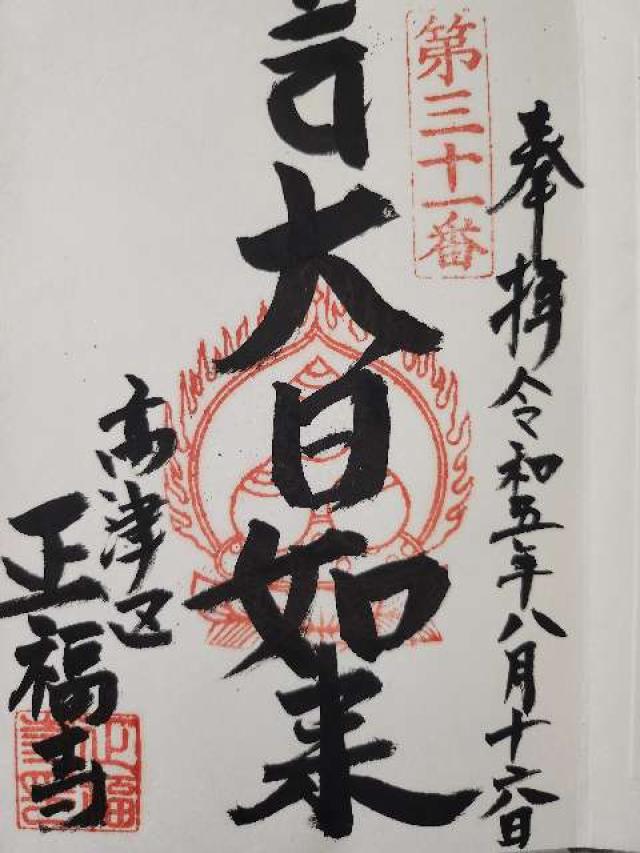 奉拝 令和五年八月十六日
第三十一番
大日如来
高津区
正福寺